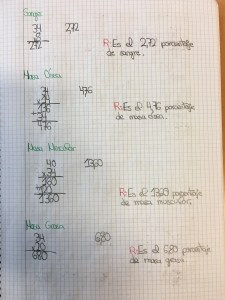 Sangre
34
8
272
2,72
R: Es el 2,72 porcentaje
de sangre.
Masa Ósea
34
136
34
476
4,76
R: Es el 4,76 porcentaje
de masa ósea.
Masa Muscular
40
34
1360
13,60
R: Es el 13,60 porcentaje
de masa muscular.
Masa Grasa
34
20
680
6,80
R: Es el 6,80 porcentaje
de masa grasa.